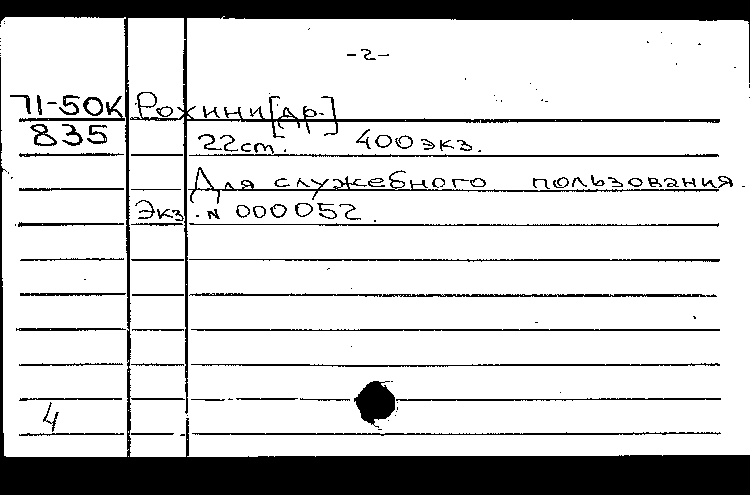 -2-
71-50К Рохнни [др.]
835 22 ст. 400 экз.
Для служебного пользования.
Экз. N 000052.
4